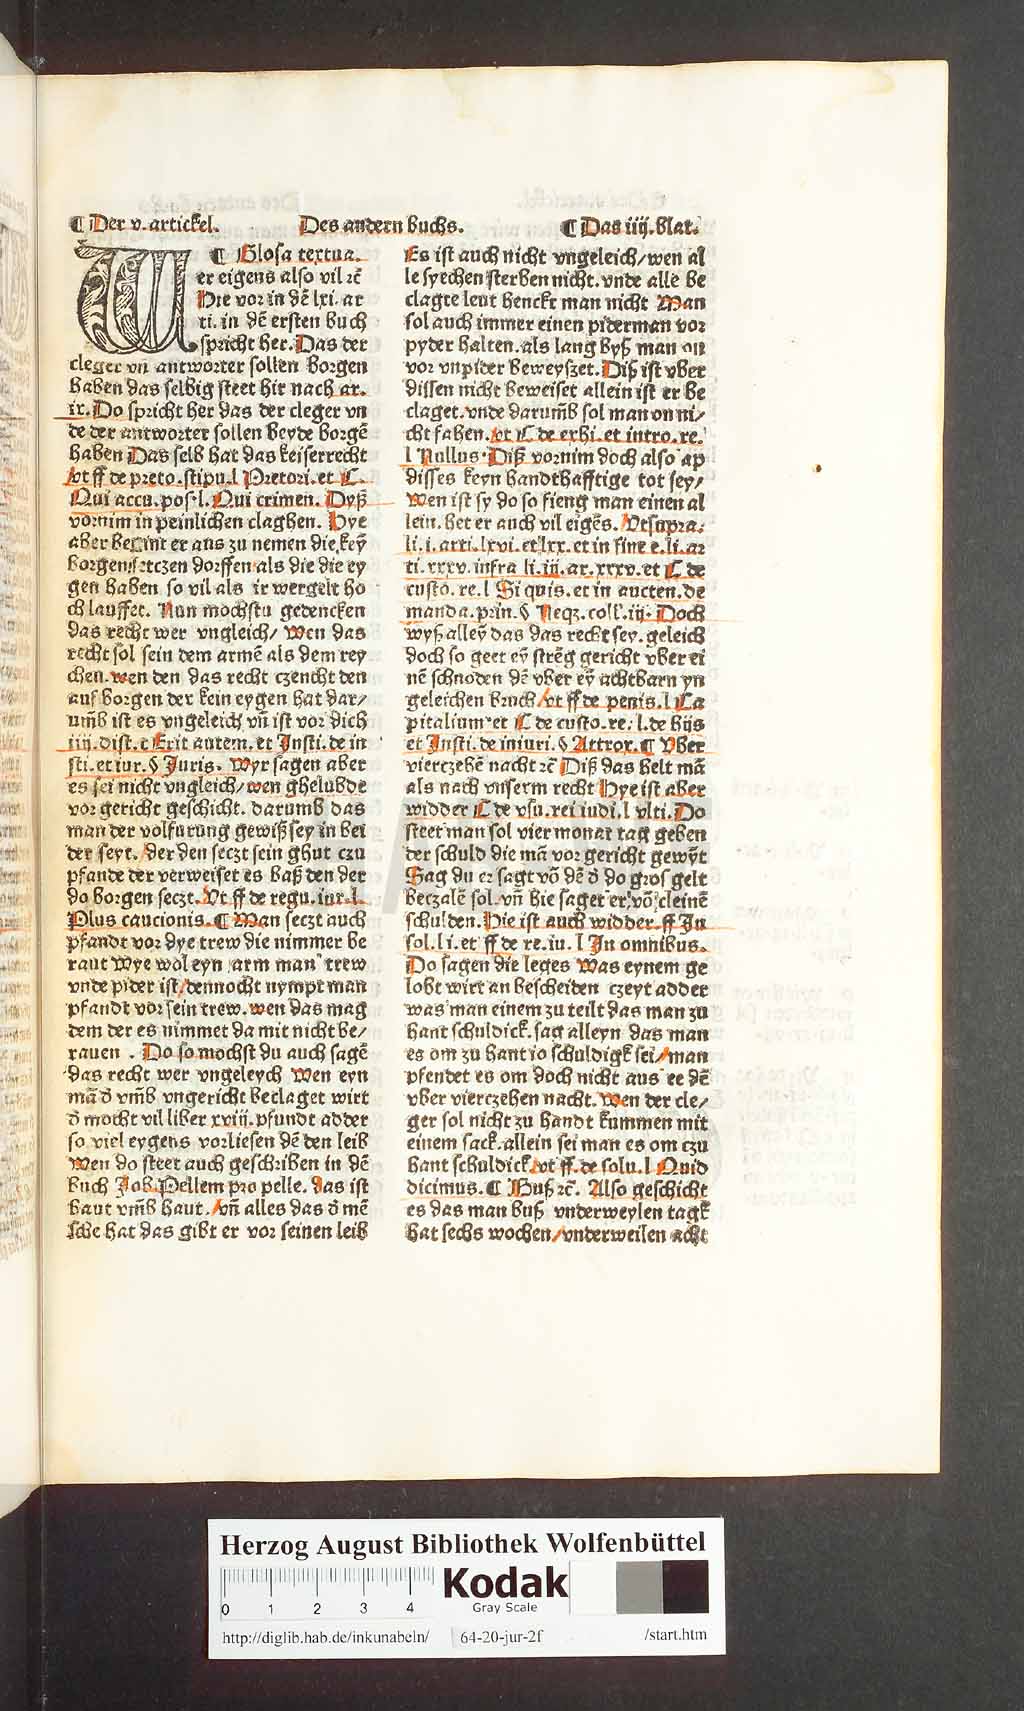 ¶ Der v. artickel. Des andern buchs. ¶ Das iiij. blat.
¶ Glosa textua.
Wer eigens also vil rc̄
Hye vor in dē lxi. ar
ti. in dē ersten buch
spricht her. Das der
cleger vn̄ antworter sollen borgen
haben das selbig steet hir nach ar.
ix. Do spricht her das der cleger vn
de der antworter sollen beyde borgē
haben Das selb hat das keiserrecht
vt ff de preto. stipu. l Pretori. et C.
Qui accu. pos. l. Qui crimen. Dyß
vornim in peinlichen claghen. Hye
aber begint er aus zu nemen die keȳ
borgen setczen dorffen als die die ey
gen haben so vil als ir wergelt ho
ch lauffet. Nun mochstu gedencken
das recht wer vngleich/ Wen das
recht sol sein dem armē als dem rey
chen. wen den das recht czencht den
auf borgen der kein eygen hat dar/
um̄b ist es vngeleich vn̄ ist vor dich
iiij. dist. c Erit autem. et Insti. de in
sti. et iur. § Juris. Wyr sagen aber
es sei nicht vngleich/ wen ghelubde
vor gericht geschicht. darumb das
man der volfurung gewiß sey in bei
der seyt. der den seczt sein ghut czu
pfande der verweiset es baß den der
do borgen seczt. Vt ff de regu. iur. l.
Plus caucionis. ¶ Man seczt auch
pfandt vor dye trew die nimmer be
raut Wye wol eyn arm man trew
vnde pider ist/ dennocht nympt man
pfandt vor sein trew. wen das mag
dem der es nimmet da mit nicht be/
rauen . Do so mochst du auch sagē
das recht wer vngeleych Wen eyn
mā d̄ vm̄b vngericht beclaget wirt
d̄ mocht vil liber xxiij. pfundt adder
so viel eygens vorliesen dē den leib
Wen do steet auch geschriben in dē
buch Job. Pellem pro pelle. das ist
haut vm̄b haut. vn̄ alles das d̄ mē
sche hat das gibt er vor seinen leib
Es ist auch nicht vngeleich/ wen al
le syechen sterben nicht. vnde alle be
clagte leut henckt man nicht Man
sol auch immer einen piderman vor
pyder halten. als lang byß man on
vor vnpider beweyszet. Diß ist vber
dissen nicht beweiset allein ist er be
claget. vnde darum̄b sol man on ni/
cht fahen. vt C de exhi. et intro. re.
l Nullus. Diß vornim doch also ap
disses keyn handthafftige tot sey/
Wen ist sy do so fieng man einen al
lein. het er auch vil eigēs. Vt supra.
li. i. arti. lxvi. et lxx. et in fine e. li. ar
ti. xxxv. infra li. iii. ar. xxxv. et C de
custo. re. l Si quis. et in aucten. de
manda. prin. § Neqz. coll. iij. Doch
wyß alleȳ das das recht sey. geleich
doch so geet eȳ strēg gericht vber ei
nē schnoden dē vber eȳ achtbarn yn
geleichen bruch/ vt ff de penis. l Ca
pitalium et C de custo. re. l. de hijs
et Insti. de iniuri. § Atrox. ¶ Vber
vierczehē nacht rc̄ Diß das helt mā
als nach vnserm recht Hye ist aber
widder C de vsu. rei iudi. l vlti. Do
steet man sol vier monat tag geben
der schuld die mā vor gericht gewȳt
Sag du er sagt vō dē d̄ do gros gelt
beczalē sol. vn̄ hie saget er vō cleinē
schulden. Hie ist auch widder. ff In
sol. l i. et ff de re. iu. l In omnibus.
Do sagen die leges Was eynem ge
lobt wirt an bescheiden czeyt adder
was man einem zu teilt das man zu
hant schuldick. sag alleyn das man
es om zu hant io schuldigk sei/ man
pfendet es om doch nicht aus ee dē
vber vierczehen nacht. Wen der cle/
ger sol nicht zu handt kummen mit
einem sack. allein sei man es om czu
hant schuldick vt ff. de solu. l Quid
dicimus. ¶ Buß rc̄. Also geschicht
es das man buß vnderweylen tagk
hat sechs wochen/ vnderweilen acht
Herzog August Bibliothek Wolfenbüttel
0 1 2 3 4
Kodak
Gray Scale
http://diglib.hab.de/inkunabeln/ 64-20-jur-2f /start.htm